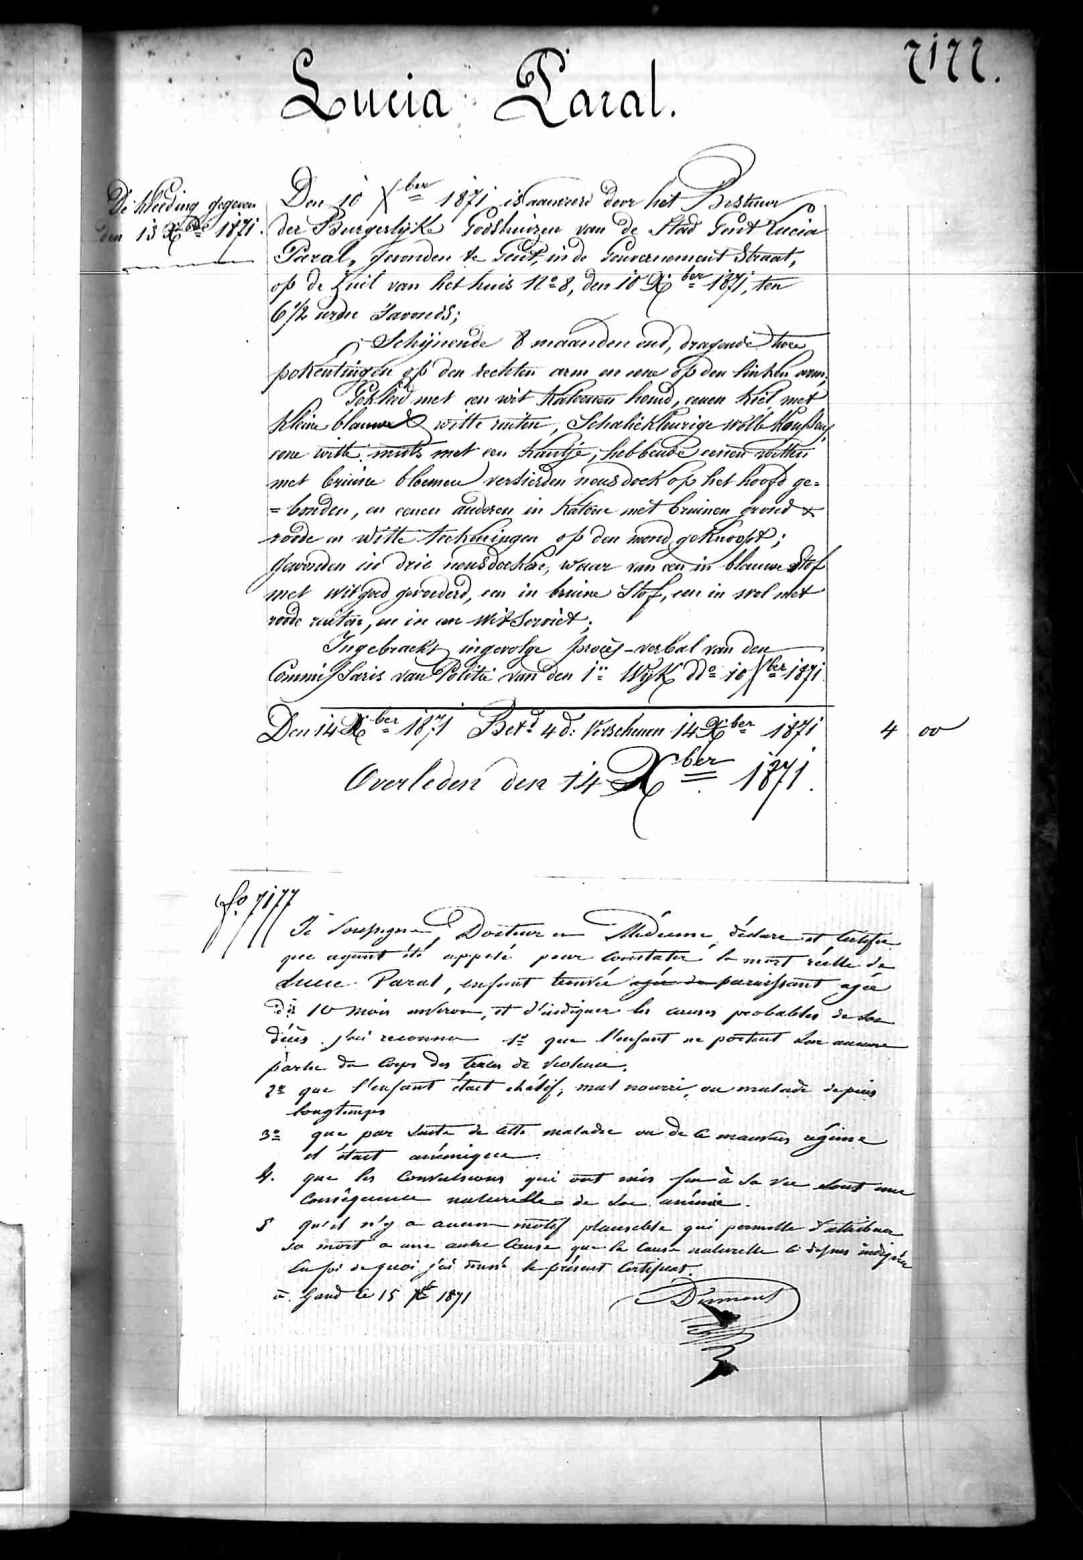 7177.
Lucia Paral.
De kleeding gegeven
den 13 Xber 1871.
Den 10 Xber 1871 is aanveerd door het Bestuur
der Burgerlijke Godshuizen van de Stad Gent Lucia
Paral, gevonden te Gent, in de Gouvernement Straat,
op de zuil van het huis No 8, den 10 Xber 1871, ten
6 1/2 uren s'avonds;
Schijnende 8 maanden oud, dragende twee
pokentingen op den rechten arm en eene op den linken arm,
Gekleed met een wit katoenen hemd, eenen kiel met
kleine blauwe & witte ruiten, Schaliekleurige wolle koussen,
eene witte muts met een kantje, hebbende eenen witten
met bruine bloemen versierden neusdoek op het hoofd ge=
=bonden, en eenen anderen in katoen met bruinen grond &
roode en witte teekeningen op den mond geknoopt;
Gewonden in drie neusdoeken, waar van een in blauwe Stof
met witgoed gevoederd, een in bruine Stof, een in wol met
roode ruiten, en in een wit Serviet;
Ingebracht ingevolge procès-verbal van den
Commissaris van Politie van den 1n Wijk do 10 Xber 1871.
Den 14 Xber 1871 Betd 4 d: verschenen 14 Xber 1871 4 00
Overleden den 14 Xber 1871.
fo 7177
Je soussigné, Docteur en Médecine, déclare et certifie
que ayant été appelé pour constater la mort réelle de
Lucie Paral, enfant trouvée agée de paraissant agée
de 10 mois environ, et d'indiquer les causes probables de son
décès. j'ai reconnu 1o que l'enfant ne portait sur aucune
partie du corps des traces de violence.
2o que l'enfant était chétif, mal nourri, ou malade depuis
longtemps
3o que par suite de cette maladie ou de ce mauvais régime
il était anémique.
4. que les convulsions qui ont mis fin à sa vie sont une
conséquence naturelle de son anémie.
5 qu'il n'y a aucun motif plausible qui permette d'attribuer
sa mort a une autre cause que la cause naturelle ci dessus indiquée
En foi de quoi j'ai donné le présent certificat.
a Gand le 15 Xbre 1871